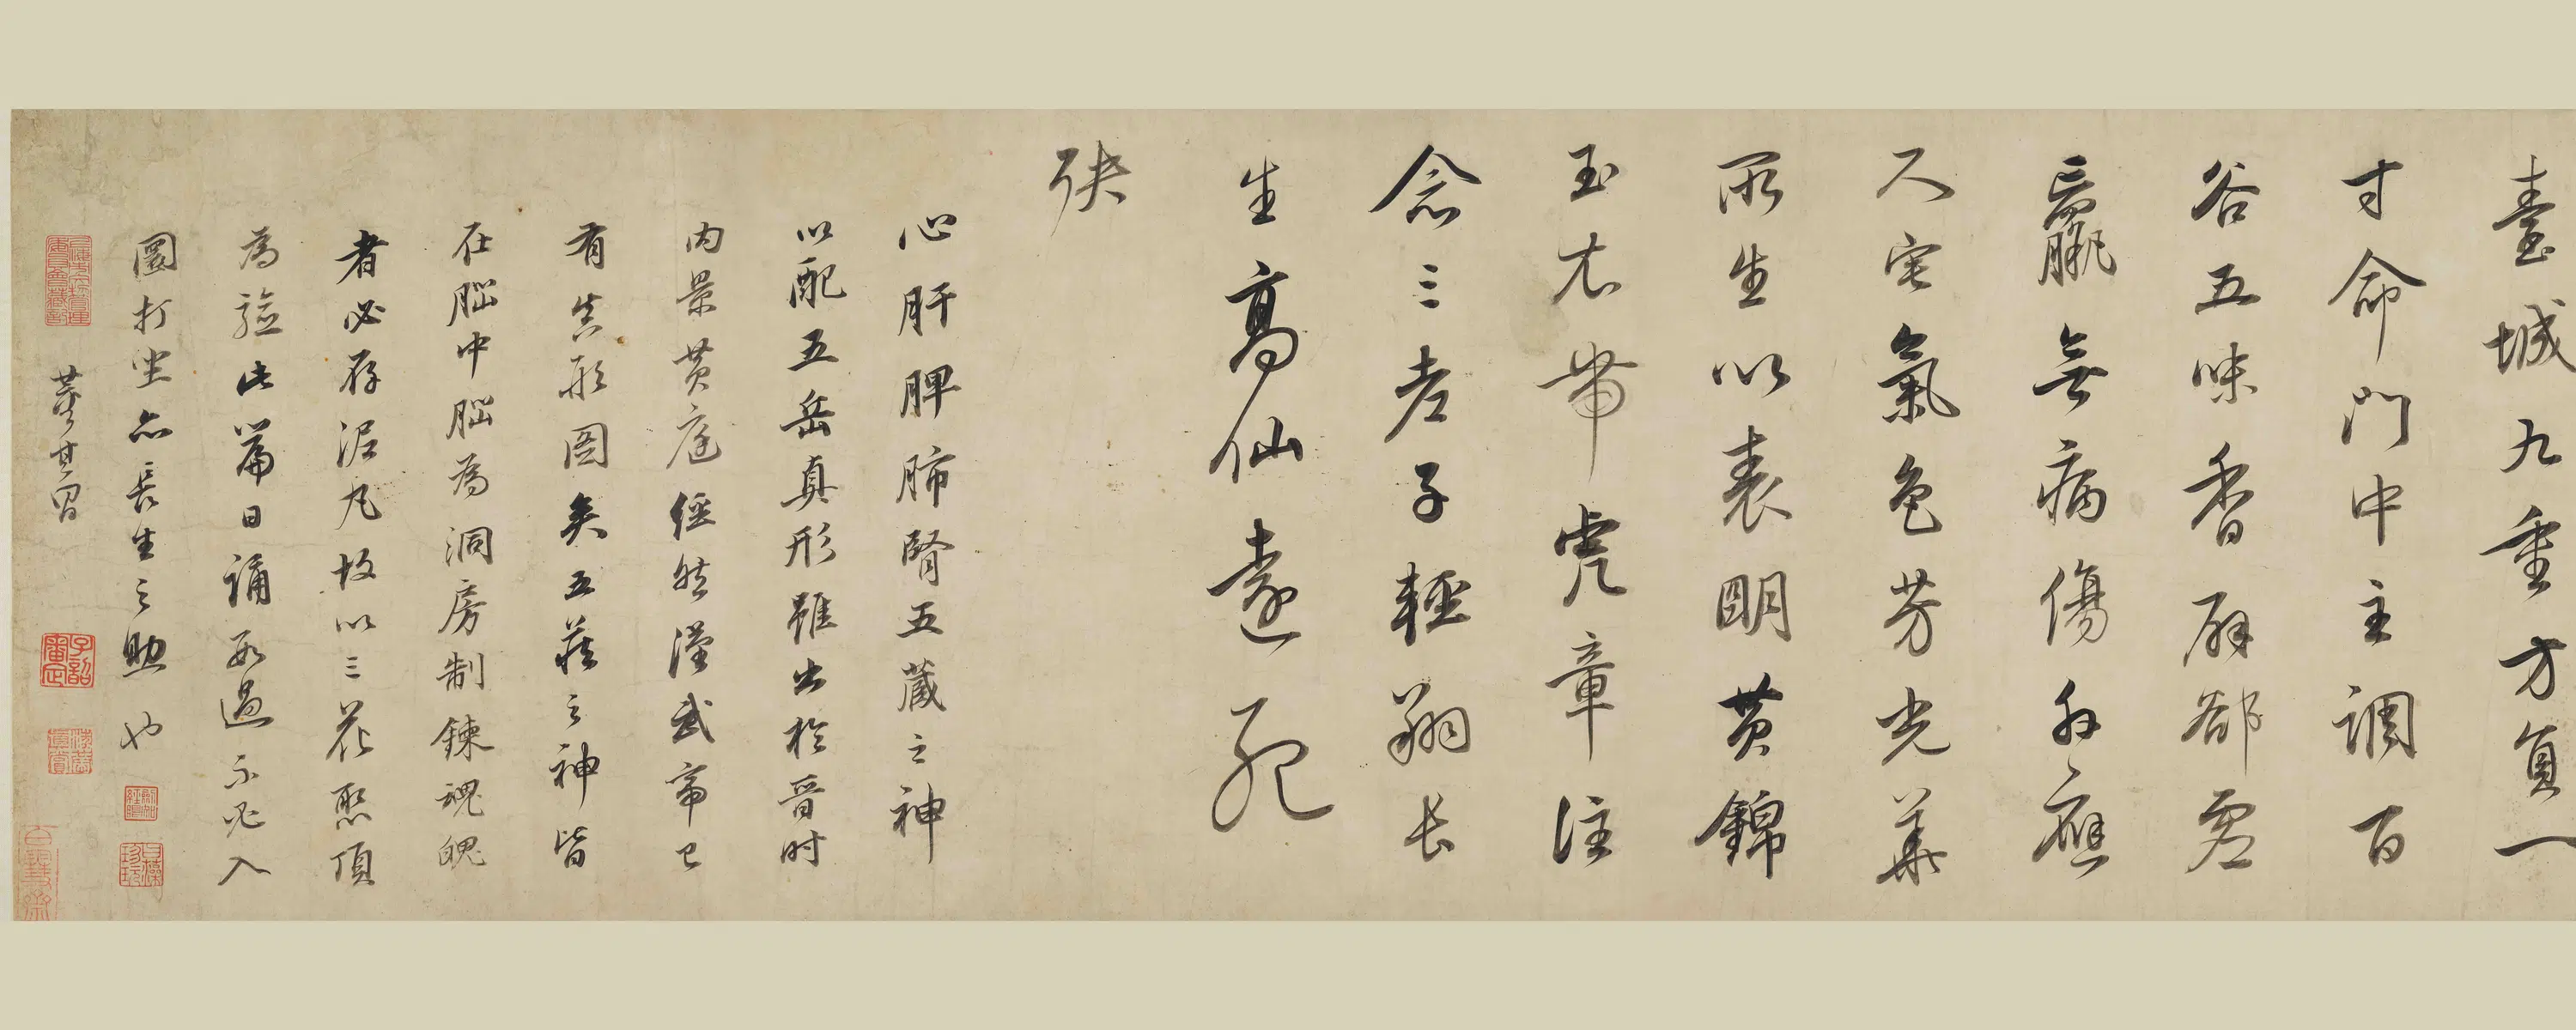 臺城九重方員一
寸命門中主調百
谷五味香辟郤惡
羸無病傷外應
尺宅氣色芳光華
所生以表明黄錦
玉衣帶虎章注
念三老子輕翔長
生高仙遠死
殃
心肝脾肺腎五藏之神
以配五岳真形雖出於晉时
内景黄庭經然漢武帝已
有真形图矣五藏之神皆
在腦中腦為洞房制鍊魂魄
者必存泥丸故以三花聚頂
為驗此篇日誦數過不必入
圜打坐亦長生之助也
董其昌
子韶
審定